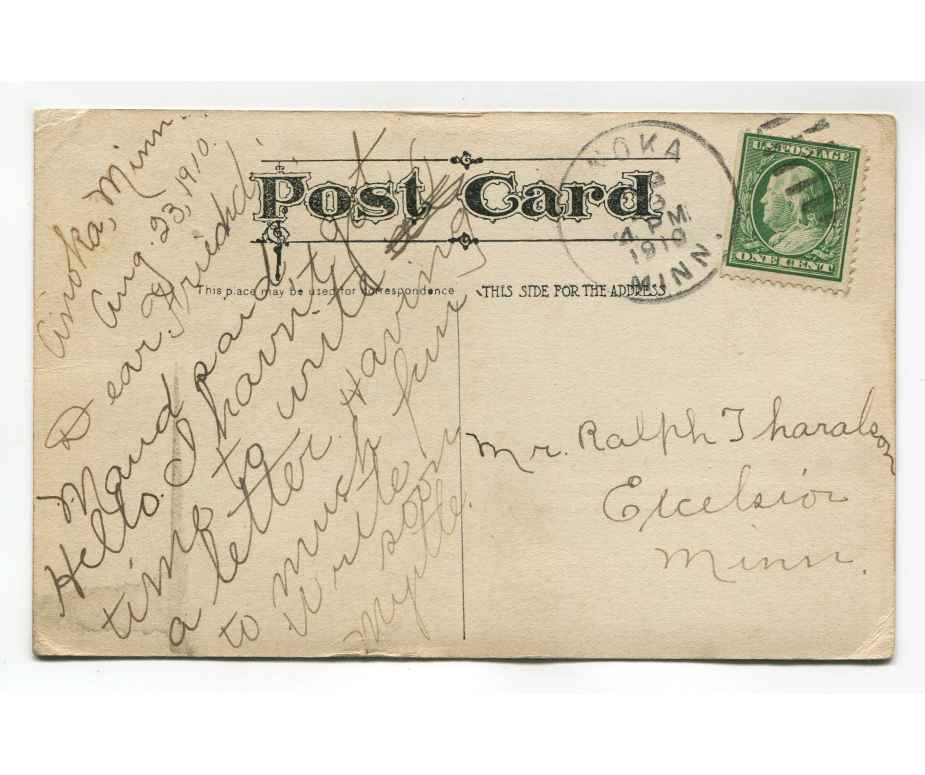 Anoka, Minn.
Aug. 23, 1910.
Dear Friend:
Maud said
Hello. I havn't got
time to write
a letter. Having
to much fun
Write soon
Myrtle.
Post Card
This place may be used for correspondence
THIS SIDE FOR THE ADDRESS
NOKA
23
4 PM
1910
MINN.
U.S. POSTAGE
ONE CENT
Mr. Ralph Tharalson
Excelsior
Minn.